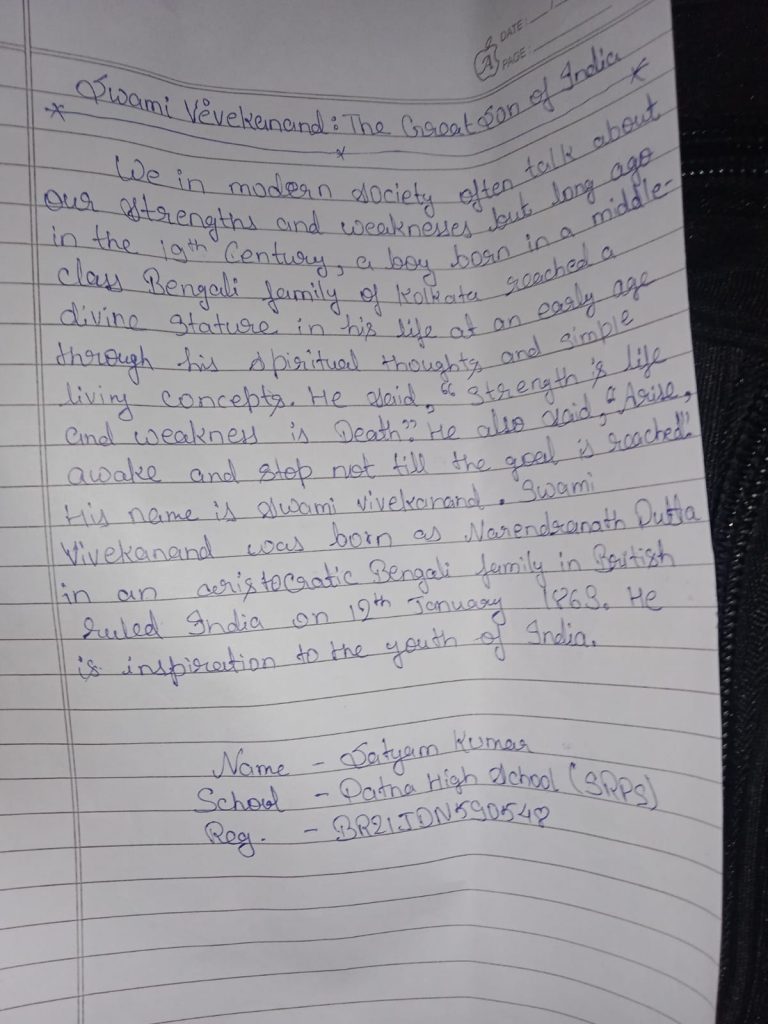 DATE:
PAGE:
Swami Vivekanand: The Great Son of India
We in modern society often talk about
our strengths and weaknesses but long ago
in the 19th Century, a boy born in a middle-
class Bengali family of Kolkata reached a
divine stature in his life at an early age
through his spiritual thoughts and simple
living concepts. He said, "Strength is life
and weakness is Death". He also said, "Arise,
awake and stop not till the goal is reached."
His name is Swami Vivekanand. Swami
Vivekanand was born as Narendranath Dutta
in an aristocratic Bengali family in British
ruled India on 12th January 1863. He
is inspiration to the youth of India.
Name - Satyam Kumar
School - Patna High School (SRPS)
Reg. - BR21JDN590548